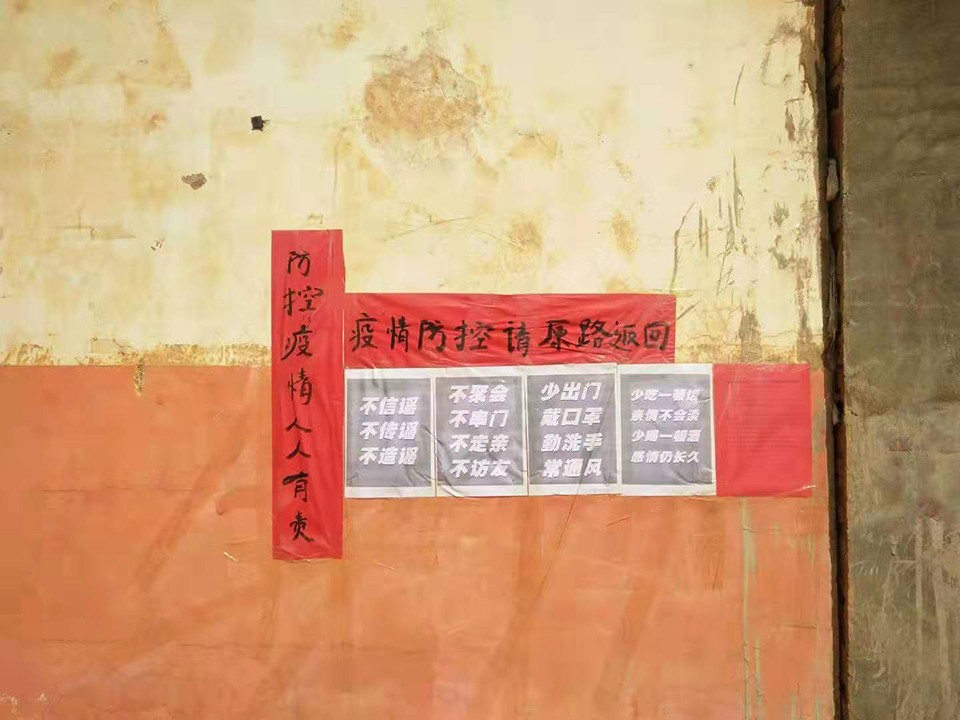 防控疫情人人有责
疫情防控请原路返回
不信谣
不传谣
不造谣
不聚会
不串门
不走亲
不访友
少出门
戴口罩
勤洗手
常通风
少吃一顿饭
亲情不会淡
少喝一顿酒
感情仍长久